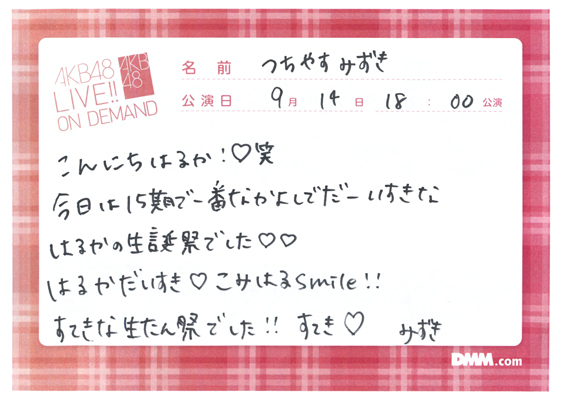 AKB48
LIVE!!
ON DEMAND
AKB
48
名前 つちやすみずき
公演日 9月 14日 18:00公演
こんにちはるか!♡笑
今日は15期で一番なかよしでだーいすきな
はるかの生誕祭でした♡♡
はるかだいすき♡こみはるsmile!!
すてきな生たん祭でした!! すてき♡ みずき
DMM.com